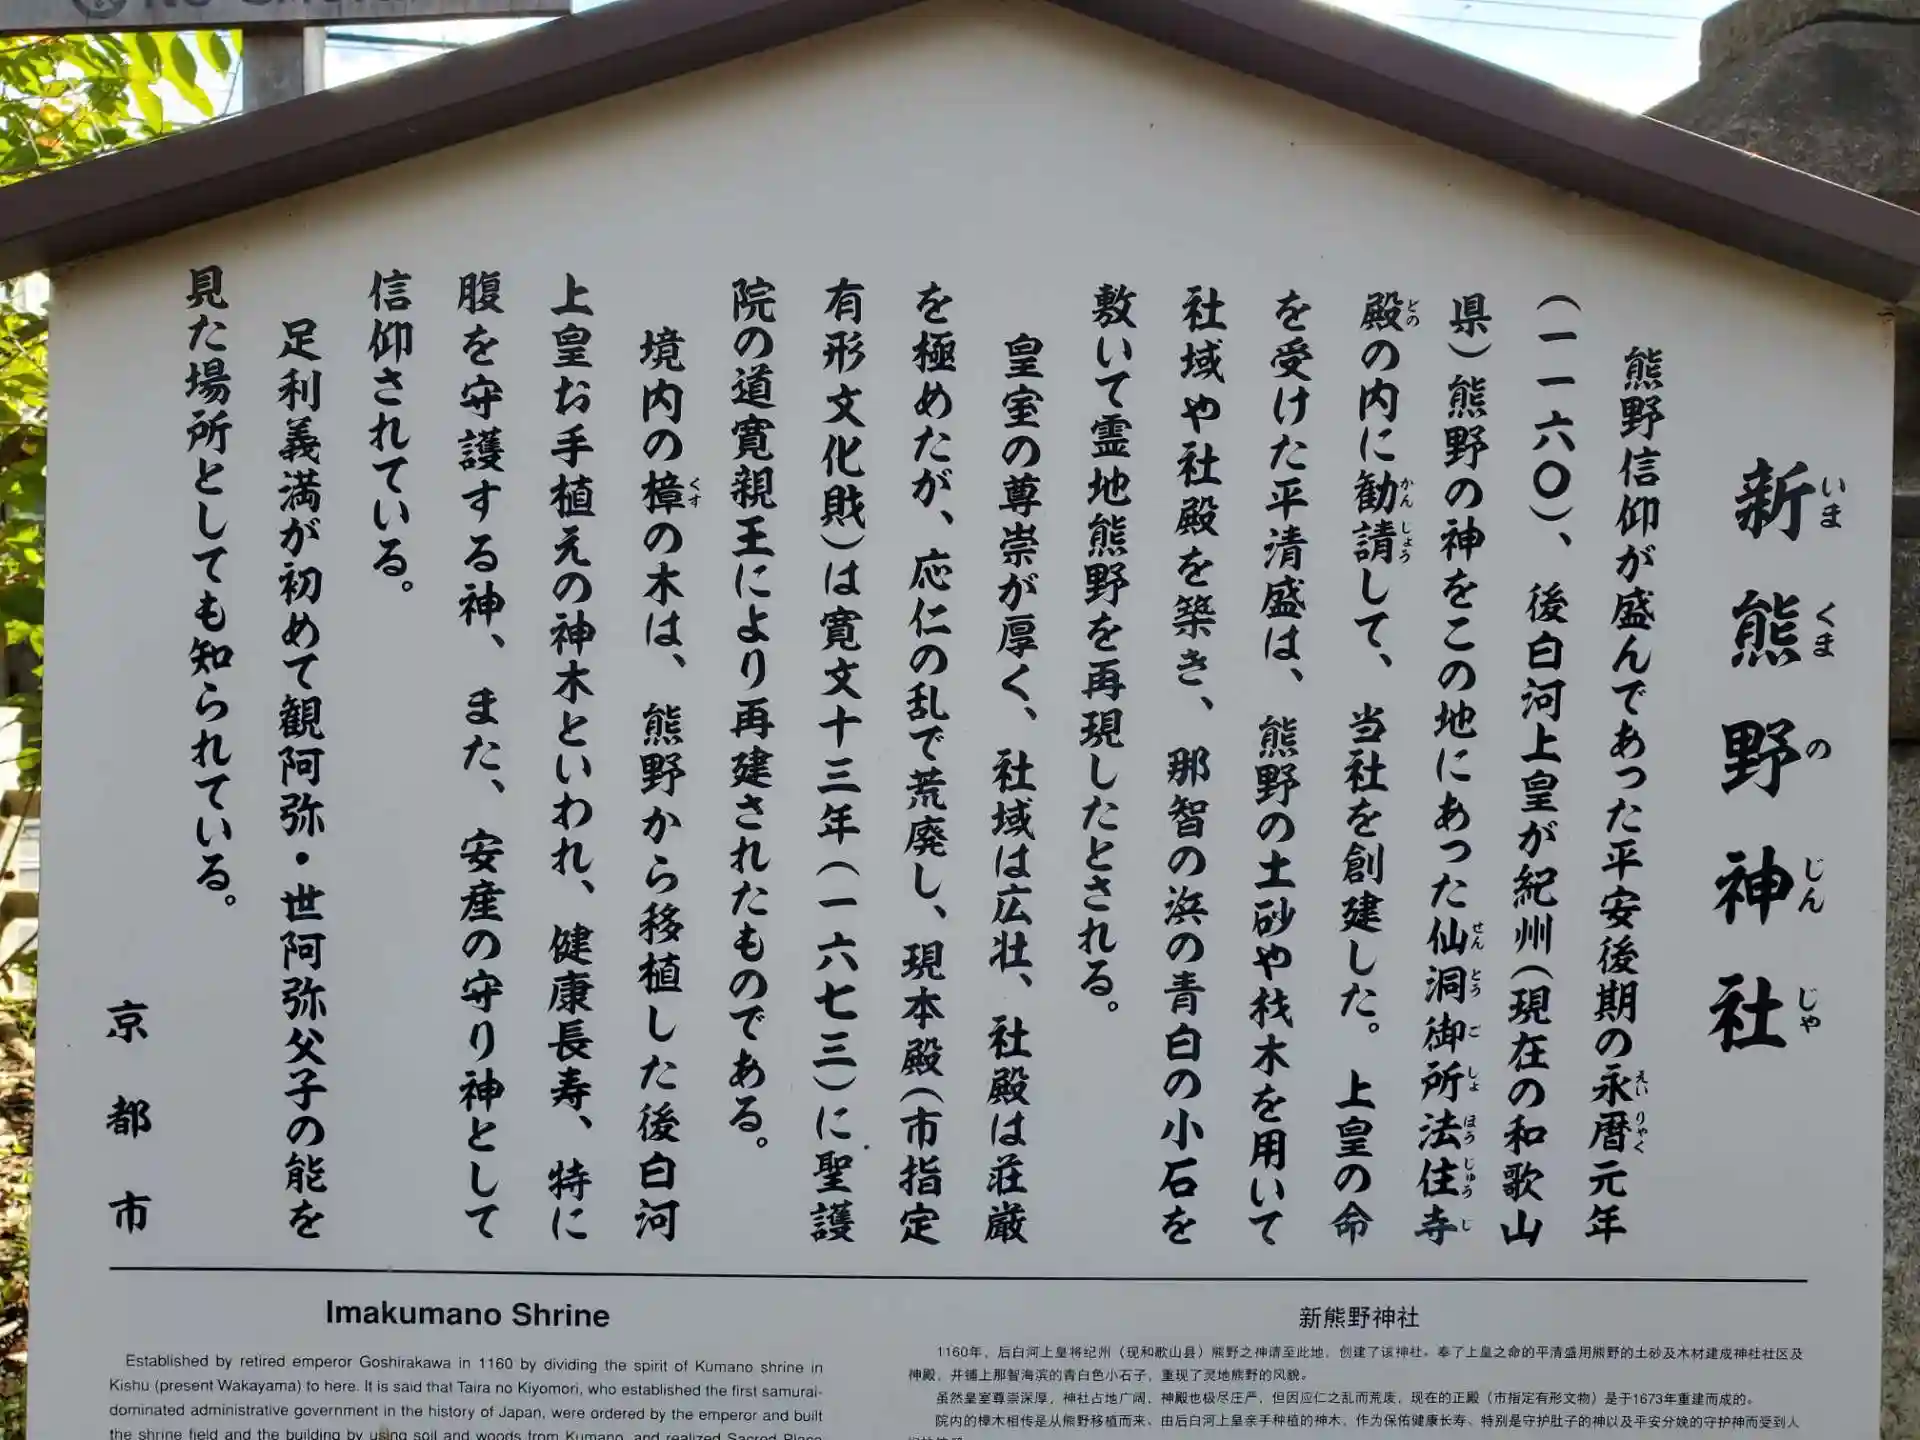 新熊野神社
いま くま の じん じゃ
熊野信仰が盛んであった平安後期の永暦元年
えい りゃく
(一一六〇)、後白河上皇が紀州(現在の和歌山
県)熊野の神をこの地にあった仙洞御所法住寺
せん とう ご しょ ほう じゅう じ
殿の内に勧請して、当社を創建した。上皇の命
どの かん じょう
を受けた平清盛は、熊野の土砂や材木を用いて
社域や社殿を築き、那智の浜の青白の小石を
敷いて霊地熊野を再現したとされる。
皇室の尊崇が厚く、社域は広壮、社殿は荘厳
を極めたが、応仁の乱で荒廃し、現本殿(市指定
有形文化財)は寛文十三年(一六七三)に聖護
院の道寛親王により再建されたものである。
境内の樟の木は、熊野から移植した後白河
くす
上皇お手植えの神木といわれ、健康長寿、特に
腹を守護する神、また、安産の守り神として
信仰されている。
足利義満が初めて観阿弥・世阿弥父子の能を
見た場所としても知られている。
京都市
Imakumano Shrine
Established by retired emperor Goshirakawa in 1160 by dividing the spirit of Kumano shrine in
Kishu (present Wakayama) to here. It is said that Taira no Kiyomori, who established the first samurai-
dominated administrative government in the history of Japan, were ordered by the emperor and built
the shrine field and the building by using soil and woods from Kumano, and realized Sacred Place
新熊野神社
1160年，后白河上皇将纪州（现和歌山县）熊野之神请至此地，创建了该神社。奉了上皇之命的平清盛用熊野的土砂及木材建成神社社区及
神殿，并铺上那智海滨的青白色小石子，重现了灵地熊野的风貌。
虽然皇室尊崇深厚，神社占地广阔、神殿也极尽庄严，但因应仁之乱而荒废，现在的正殿（市指定有形文物）是于1673年重建而成的。
院内的樟木相传是从熊野移植而来、由后白河上皇亲手种植的神木，作为保佑健康长寿、特别是守护肚子的神以及平安分娩的守护神而受到人